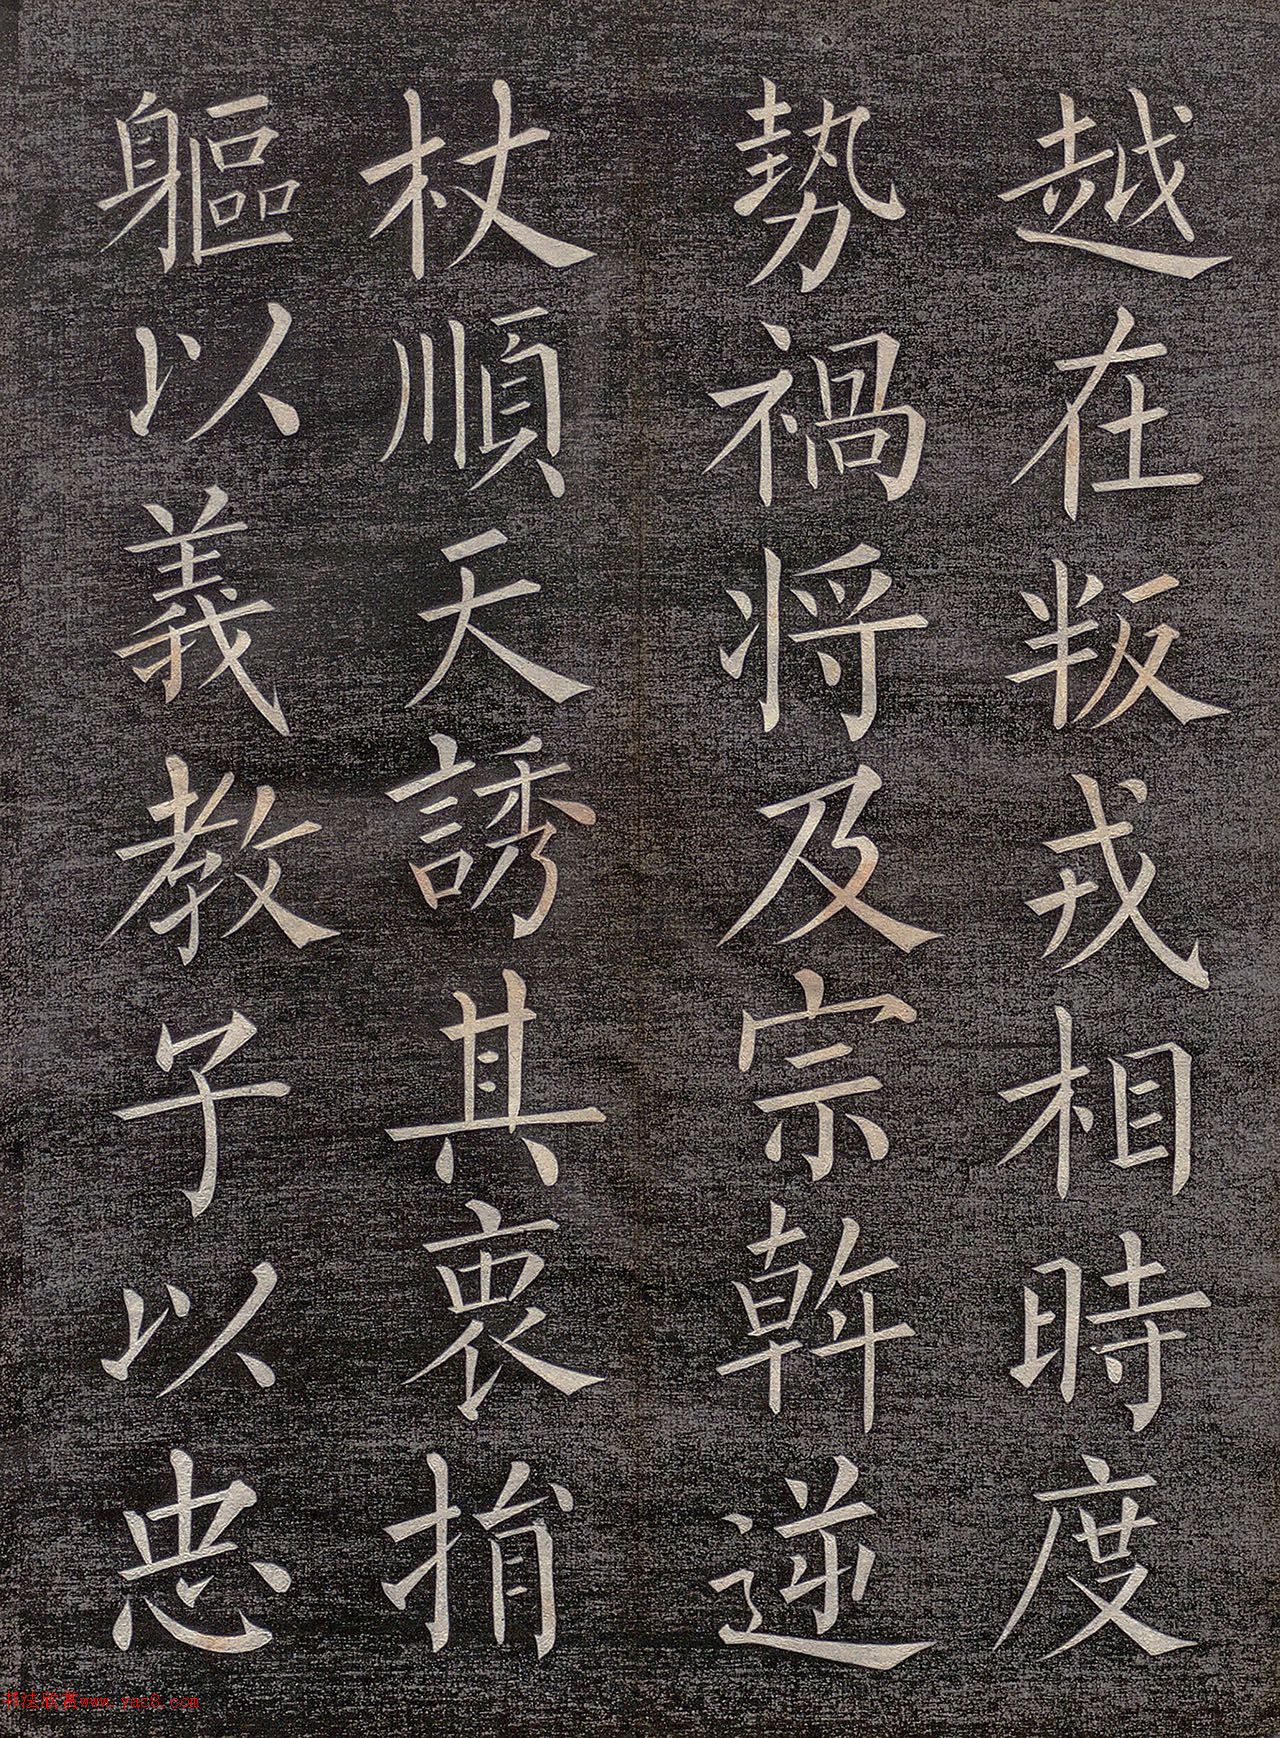 越在叛戎相時度
勢禍将及宗幹逆
杖順天誘其衷捐
軀以義教子以忠
书法欣赏www.yac8.com